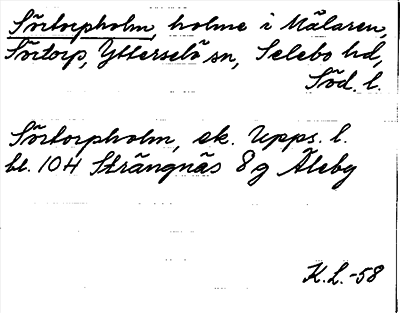 Sörtorpholm, holme i Mälaren,
Sörtorp, Ytterselö sn, Selebo hd,
Söd. l.
Sörtorpholm, ek. Upps. l.
bl. 104 Strängnäs 8g Åleby
K.L.-58